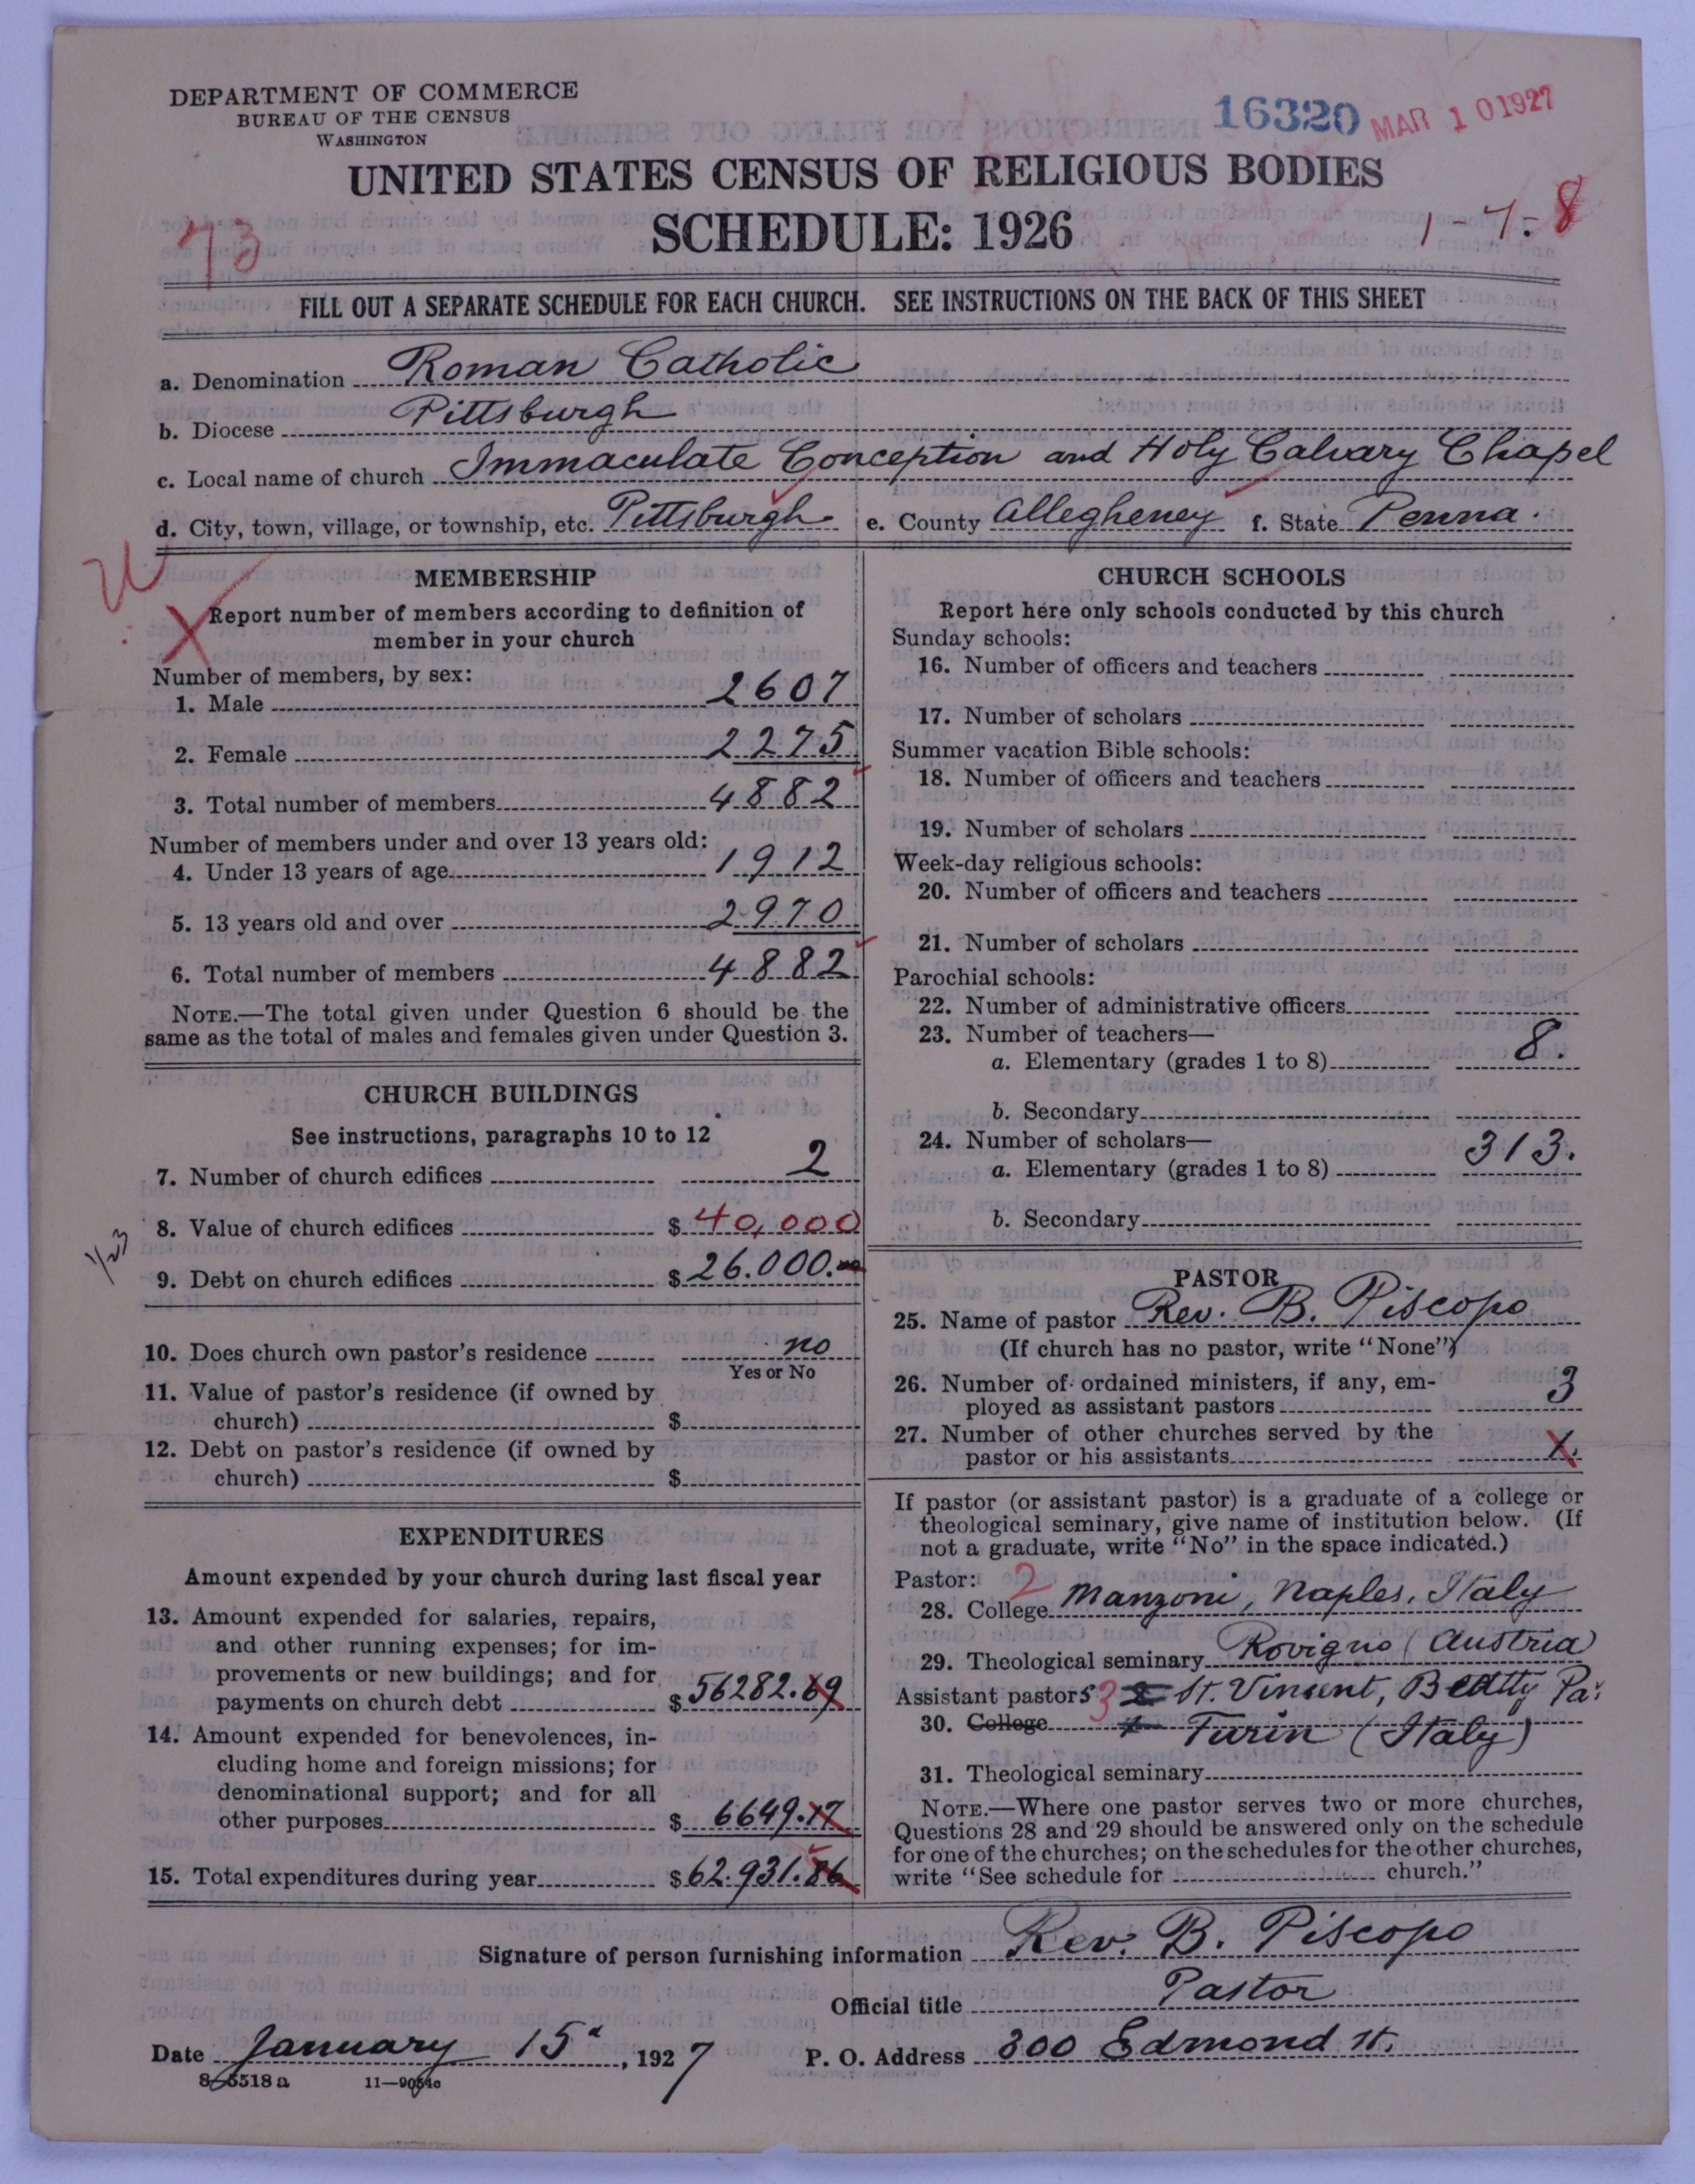 DEPARTMENT OF COMMERCE
BUREAU OF THE CENSUS
WASHINGTON
16320 MAR 10 1927
UNITED STATES CENSUS OF RELIGIOUS BODIES
SCHEDULE: 1926
73
1-7-8
FILL OUT A SEPARATE SCHEDULE FOR EACH CHURCH. SEE INSTRUCTIONS ON THE BACK OF THIS SHEET
a. Denomination Roman Catholic
b. Diocese Pittsburgh
c. Local name of church Immaculate Conception and Holy Calvary Chapel
d. City, town, village, or township, etc. Pittsburgh e. County Allegheney f. State Penna.
MEMBERSHIP
Report number of members according to definition of
member in your church
Number of members, by sex:
1. Male 2607
2. Female 2275
3. Total number of members 4882
Number of members under and over 13 years old:
4. Under 13 years of age 1912
5. 13 years old and over 2970
6. Total number of members 4882
NOTE.—The total given under Question 6 should be the
same as the total of males and females given under Question 3.
CHURCH BUILDINGS
See instructions, paragraphs 10 to 12
7. Number of church edifices 2
8. Value of church edifices $ 40,000
1/23
9. Debt on church edifices $ 26.000.
10. Does church own pastor's residence no
Yes or No
11. Value of pastor's residence (if owned by
church) $
12. Debt on pastor's residence (if owned by
church) $
EXPENDITURES
Amount expended by your church during last fiscal year
13. Amount expended for salaries, repairs,
and other running expenses; for im-
provements or new buildings; and for
payments on church debt $ 56282.69
14. Amount expended for benevolences, in-
cluding home and foreign missions; for
denominational support; and for all
other purposes $ 6649.17
15. Total expenditures during year $ 62.931.86
CHURCH SCHOOLS
Report here only schools conducted by this church
Sunday schools:
16. Number of officers and teachers
17. Number of scholars
Summer vacation Bible schools:
18. Number of officers and teachers
19. Number of scholars
Week-day religious schools:
20. Number of officers and teachers
21. Number of scholars
Parochial schools:
22. Number of administrative officers
23. Number of teachers—
a. Elementary (grades 1 to 8) 8.
b. Secondary
24. Number of scholars—
a. Elementary (grades 1 to 8) 313.
b. Secondary
PASTOR
25. Name of pastor Rev. B. Piscopo
(If church has no pastor, write "None")
26. Number of ordained ministers, if any, em-
ployed as assistant pastors 3
27. Number of other churches served by the
pastor or his assistants X.
If pastor (or assistant pastor) is a graduate of a college or
theological seminary, give name of institution below. (If
not a graduate, write "No" in the space indicated.)
Pastor: 2
28. College Manzoni, Naples, Italy
29. Theological seminary Rovigno (Austria)
Assistant pastors 3 2 St. Vincent, Beatty Pa.
30. College 1 Turin (Italy)
31. Theological seminary
NOTE.—Where one pastor serves two or more churches,
Questions 28 and 29 should be answered only on the schedule
for one of the churches; on the schedules for the other churches,
write "See schedule for church."
Signature of person furnishing information Rev. B. Piscopo
Official title Pastor
Date January 15, 1927 P. O. Address 300 Edmond St.
8-5518a 11—9054c